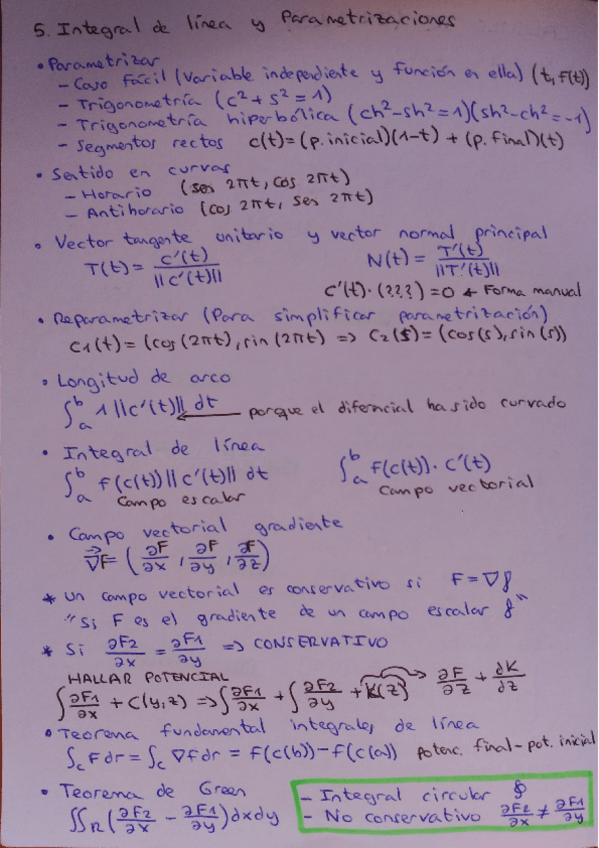 5. Integral de línea y Parametrizaciones
• Parametrizar
– Caso fácil (Variable independiente y función en ella) (t, f(t))
– Trigonometría (c² + s² = 1)
– Trigonometría hiperbólica (ch² - sh² = 1)(sh² - ch² = -1)
– Segmentos rectos c(t) = (p. inicial)(1-t) + (p. final)(t)
• Sentido en curvas
– Horario (sen 2πt, cos 2πt)
– Antihorario (cos 2πt, sen 2πt)
• Vector tangente unitario y vector normal principal
T(t) = c'(t) / ||c'(t)|| N(t) = T'(t) / ||T'(t)||
c'(t) · (???) = 0 ← Forma manual
• Reparametrizar (Para simplificar parametrización)
c₁(t) = (cos(2πt), sin(2πt) => c₂(s) = (cos(s), sin(s))
• Longitud de arco
∫ₐᵇ 1 ||c'(t)|| dt ← porque el diferencial ha sido curvado
• Integral de línea
∫ₐᵇ f(c(t)) ||c'(t)|| dt ∫ₐᵇ f(c(t)) · c'(t)
Campo escalar Campo vectorial
• Campo vectorial gradiente
∇F = (∂F/∂x, ∂F/∂y, ∂F/∂z)
* Un campo vectorial es conservativo si F = ∇f
"Si F es el gradiente de un campo escalar f"
* Si ∂F2/∂x = ∂F1/∂y => CONSERVATIVO
HALLAR POTENCIAL
∫ ∂F1/∂x + C(y,z) => ∫ ∂F1/∂x + ∫ ∂F2/∂y + K(z) → ∂F/∂z + dK/dz
• Teorema fundamental integrales de línea
∫c F dr = ∫c ∇f dr = f(c(b)) - f(c(a)) potenc. final - pot. inicial
• Teorema de Green
∬R (∂F2/∂x - ∂F1/∂y) dxdy
– Integral circular ∮
– No conservativo ∂F2/∂x ≠ ∂F1/∂y